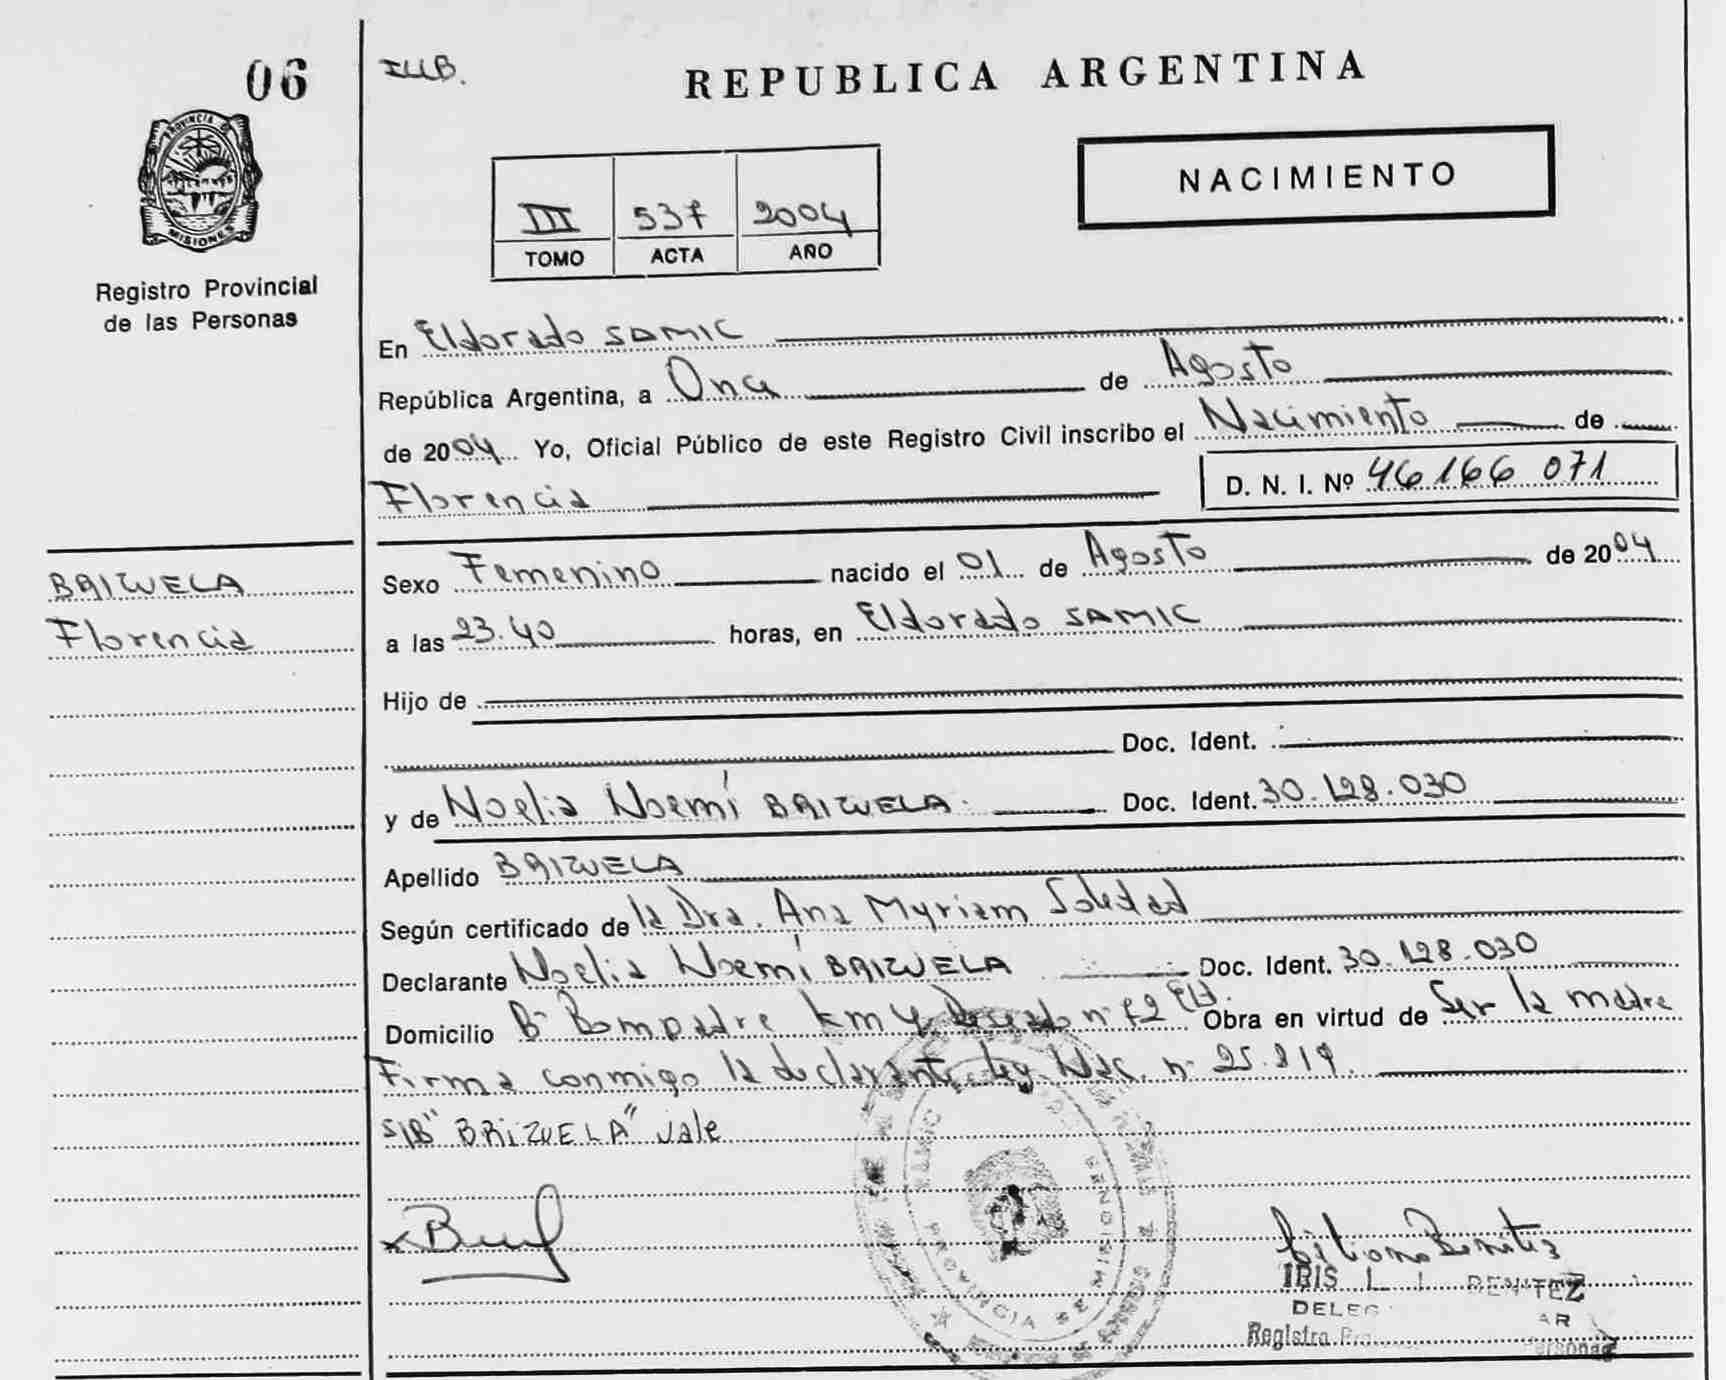 06
REPUBLICA ARGENTINA
PROVINCIA DE
MISIONES
Registro Provincial
de las Personas
NACIMIENTO
III 537 2004
TOMO ACTA AÑO
En Eldorado SAMIC
República Argentina, a Once de Agosto
de 2004 Yo, Oficial Público de este Registro Civil inscribo el Nacimiento de
Florencia D. N. I. Nº 46166 071
BRIZUELA
Florencia
Sexo Femenino nacido el 01 de Agosto de 2004
a las 23.40 horas, en Eldorado SAMIC
Hijo de
Doc. Ident.
y de Noelia Noemí BRIZUELA. Doc. Ident. 30.128.030
Apellido BRIZUELA
Según certificado de la Dra. Ana Myriam Soledad
Declarante Noelia Noemí BRIZUELA Doc. Ident. 30.128.030
Domicilio Bº Bompadre Km 4 nº 72 Eld. Obra en virtud de Ser la madre
Firma conmigo la declarante ley Nac. nº 25.819.
S/B "BRIZUELA" vale
SAMIC
PROVINCIA DE MISIONES
Benitez
IRIS L BENITEZ
Registro